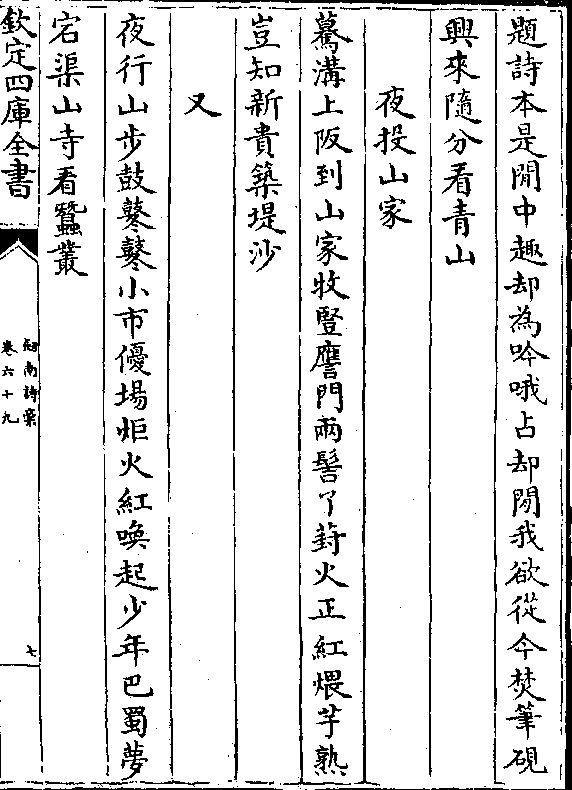 題詩本是閒中趣却為吟哦占却閒我欲從今焚筆硯
興來隨分看青山
夜投山家
驀溝上阪到山家牧豎譍門兩髻丫葑火正紅煨芋熟
豈知新貴築堤沙
又
夜行山步鼓鼕鼕小市優場炬火紅喚起少年巴蜀夢
宕渠山寺看蠶叢
欽定四庫全書
劍南詩稾
卷六十九
七